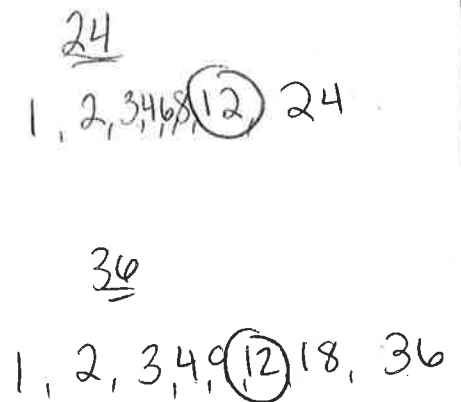 24
1, 2, 3, 4, 6, 8, 12, 24
36
1, 2, 3, 4, 9, 12, 18, 36